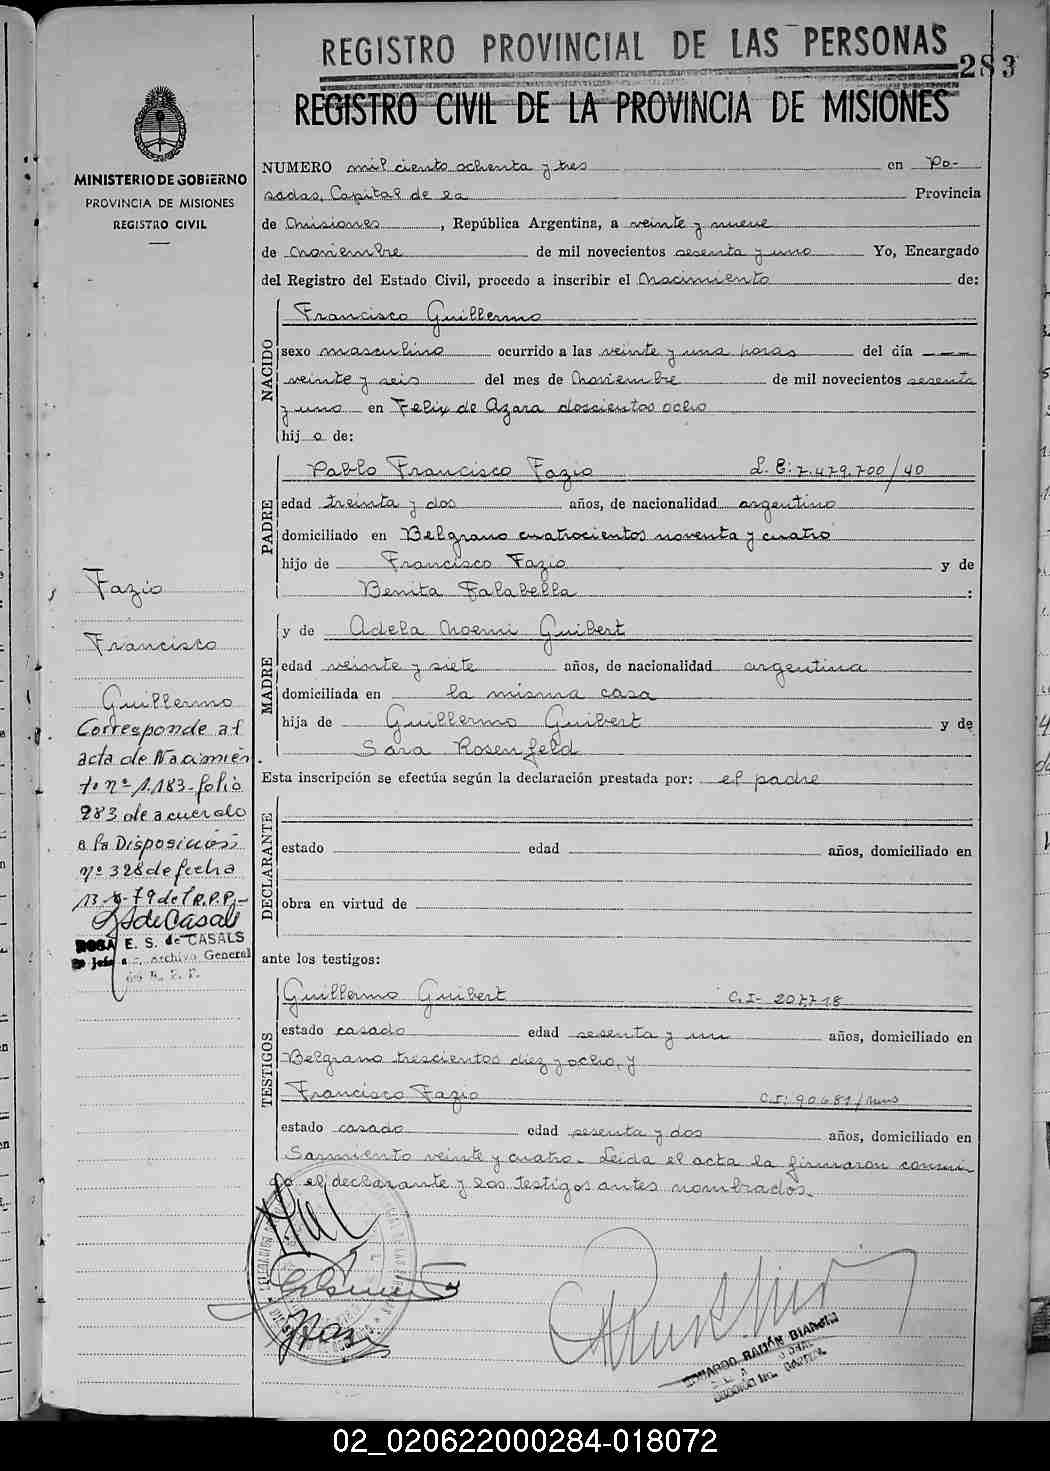 REGISTRO PROVINCIAL DE LAS PERSONAS
283
REGISTRO CIVIL DE LA PROVINCIA DE MISIONES
MINISTERIO DE GOBIERNO
PROVINCIA DE MISIONES
REGISTRO CIVIL
NUMERO mil ciento ochenta y tres en Po-
sadas, Capital de la Provincia
de Misiones, República Argentina, a veinte y nueve
de Noviembre de mil novecientos sesenta y uno Yo, Encargado
del Registro del Estado Civil, procedo a inscribir el Nacimiento de:
NACIDO
Francisco Guillermo
sexo masculino ocurrido a las veinte y una horas del día
veinte y seis del mes de Noviembre de mil novecientos sesenta
y uno en Felix de Azara doscientos ocho
hij o de:
PADRE
Pablo Francisco Fazio L. E: 7.479.700/40
edad treinta y dos años, de nacionalidad argentino
domiciliado en Belgrano cuatrocientos noventa y cuatro
hijo de Francisco Fazio y de
Benita Falabella :
MADRE
y de Adela Noemi Guibert
edad veinte y siete años, de nacionalidad argentina
domiciliada en la misma casa
hija de Guillermo Guibert y de
Sara Rosenfeld
Esta inscripción se efectúa según la declaración prestada por: el padre
DECLARANTE
estado edad años, domiciliado en
obra en virtud de
ante los testigos:
TESTIGOS
Guillermo Guibert C.I- 207718
estado casado edad sesenta y un años, domiciliado en
Belgrano trescientos diez y ocho, y
Francisco Fazio C.I: 90681/
estado casado edad sesenta y dos años, domiciliado en
Sarmiento veinte y cuatro. Leida el acta la firmaron conmi
go el declarante y los testigos antes nombrados.
Fazio
Francisco
Guillermo
Corresponde al
acta de Nacimien
to nº 1.183-folio
283 de acuerdo
a la Disposición
nº 328 de fecha
13 9-79 del R.P.P.-
ROSA E. S. de CASALS
Jefe Archivo General
EDUARDO RAMÓN BIANCHI
02_020622000284-018072